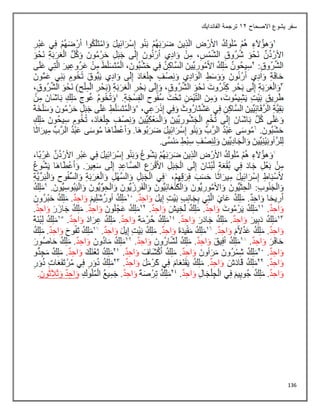 سفر يشوع الاصحاح ١٢ ترجمة الفاندايك
١وَهؤُلاَءِ هُمْ مُلُوكُ الأَرْضِ الَّذِينَ ضَرَبَهُمْ بَنُو إِسْرَائِيلَ وَامْتَلَكُوا أَرْضَهُمْ فِي عَبْرِ
الأُرْدُنِّ نَحْوَ شُرُوقِ الشَّمْسِ، مِنْ وَادِي أَرْنُونَ إِلَى جَبَلِ حَرْمُونَ وَكُلِّ الْعَرَبَةِ نَحْوَ
الشُّرُوقِ: ٢سِيحُونُ مَلِكُ الأَمُورِيِّينَ السَّاكِنُ فِي حَشْبُونَ، الْمُتَسَلِّطُ مِنْ عَرُوعِيرَ الَّتِي عَلَى
حَافَةِ وَادِي أَرْنُونَ وَوَسَطِ الْوَادِي وَنِصْفِ جِلْعَادَ إِلَى وَادِي يَبُّوقَ تُخُومِ بَنِي عَمُّونَ
٣وَالْعَرَبَةِ إِلَى بَحْرِ كِنَّرُوتَ نَحْوَ الشُّرُوقِ، وَإِلَى بَحْرِ الْعَرَبَةِ، بَحْرِ الْمِلْحِ، نَحْوَ الشُّرُوقِ،
طَرِيقِ بَيْتِ يَشِيمُوتَ، وَمِنَ التَّيْمَنِ تَحْتَ سُفُوحِ الْفِسْجَةِ. ٤وَتُخُومُ عُوجٍ مَلِكِ بَاشَانَ مِنْ
بَقِيَّةِ الرَّفَائِيِّينَ السَّاكِنِ فِي عَشْتَارُوثَ وَفِي إِذْرَعِي، ٥وَالْمُتَسَلِّطِ عَلَى جَبَلِ حَرْمُونَ وَسَلْخَةَ
وَعَلَى كُلِّ بَاشَانَ إِلَى تُخُومِ الْجَشُورِيِّينَ وَالْمَعْكِيِّينَ وَنِصْفِ جِلْعَادَ، تُخُومِ سِيحُونَ مَلِكِ
حَشْبُونَ. ٦مُوسَى عَبْدُ الرَّبِّ وَبَنُو إِسْرَائِيلَ ضَرَبُوهَا. وَأَعْطَاهَا مُوسَى عَبْدُ الرَّبِّ مِيرَاثًا
لِلرَّأُوبَيْنِيِّينَ وَالْجَادِيِّينَ وَلِنِصْفِ سِبْطِ مَنَسَّى.
٧وَهؤُلاَءِ هُمْ مُلُوكُ الأَرْضِ الَّذِينَ ضَرَبَهُمْ يَشُوعُ وَبَنُو إِسْرَائِيلَ فِي عَبْرِ الأُرْدُنِّ غَرْبًا،
مِنْ بَعْلِ جَادَ فِي بُقْعَةِ لُبْنَانَ إِلَى الْجَبَلِ الأَقْرَعِ الصَّاعِدِ إِلَى سَعِيرَ. وَأَعْطَاهَا يَشُوعُ
لأَسْبَاطِ إِسْرَائِيلَ مِيرَاثًا حَسَبَ فِرَقِهِمْ، ٨فِي الْجَبَلِ وَالسَّهْلِ وَالْعَرَبَةِ وَالسُّفُوحِ وَالْبَرِّيَّةِ
وَالْجَنُوبِ: الْحِثِّيُّونَ وَالأَمُورِيُّونَ وَالْكَنْعَانِيُّونَ وَالْفِرِزِّيُّونَ وَالْحِوِّيُّونَ وَالْيَبُوسِيُّونَ. ٩مَلِكُ
أَرِيحَا وَاحِدٌ. مَلِكُ عَايَ الَّتِي بِجَانِبِ بَيْتِ إِيلَ وَاحِدٌ. ١٠مَلِكُ أُورُشَلِيمَ وَاحِدٌ. مَلِكُ حَبْرُونَ
وَاحِدٌ. ١١مَلِكُ يَرْمُوتَ وَاحِدٌ. مَلِكُ لَخِيشَ وَاحِدٌ. ١٢مَلِكُ عَجْلُونَ وَاحِدٌ. مَلِكُ جَازَرَ وَاحِدٌ.
١٣مَلِكُ دَبِيرَ وَاحِدٌ. مَلِكُ جَادَرَ وَاحِدٌ. ١٤مَلِكُ حُرْمَةَ وَاحِدٌ. مَلِكُ عِرَادَ وَاحِدٌ. ١٥مَلِكُ لِبْنَةَ
وَاحِدٌ. مَلِكُ عَدُلاَّمَ وَاحِدٌ. ١٦مَلِكُ مَقِّيدَةَ وَاحِدٌ. مَلِكُ بَيْتِ إِيلَ وَاحِدٌ. ١٧مَلِكُ تَفُّوحَ وَاحِدٌ. مَلِكُ
حَافَرَ وَاحِدٌ. ١٨مَلِكُ أَفِيقَ وَاحِدٌ. مَلِكُ لَشَّارُونَ وَاحِدٌ. ١٩مَلِكُ مَادُونَ وَاحِدٌ. مَلِكُ حَاصُورَ
وَاحِدٌ. ٢٠مَلِكُ شِمْرُونَ مَرَأُونَ وَاحِدٌ. مَلِكُ أَكْشَافَ وَاحِدٌ. ٢١مَلِكُ تَعْنَكَ وَاحِدٌ. مَلِكُ مَجِدُّو
وَاحِدٌ. ٢٢مَلِكُ قَادَشَ وَاحِدٌ. مَلِكُ يَقْنَعَامَ فِي كَرْمَلَ وَاحِدٌ. ٢٣مَلِكُ دُورٍ فِي مُرْتَفَعَاتِ دُورٍ
وَاحِدٌ. مَلِكُ جُويِيمَ فِي الْجِلْجَالِ وَاحِدٌ. ٢٤مَلِكُ تِرْصَةَ وَاحِدٌ. جَمِيعُ الْمُلُوكِ وَاحِدٌ وَثَلاَثُونَ.
136